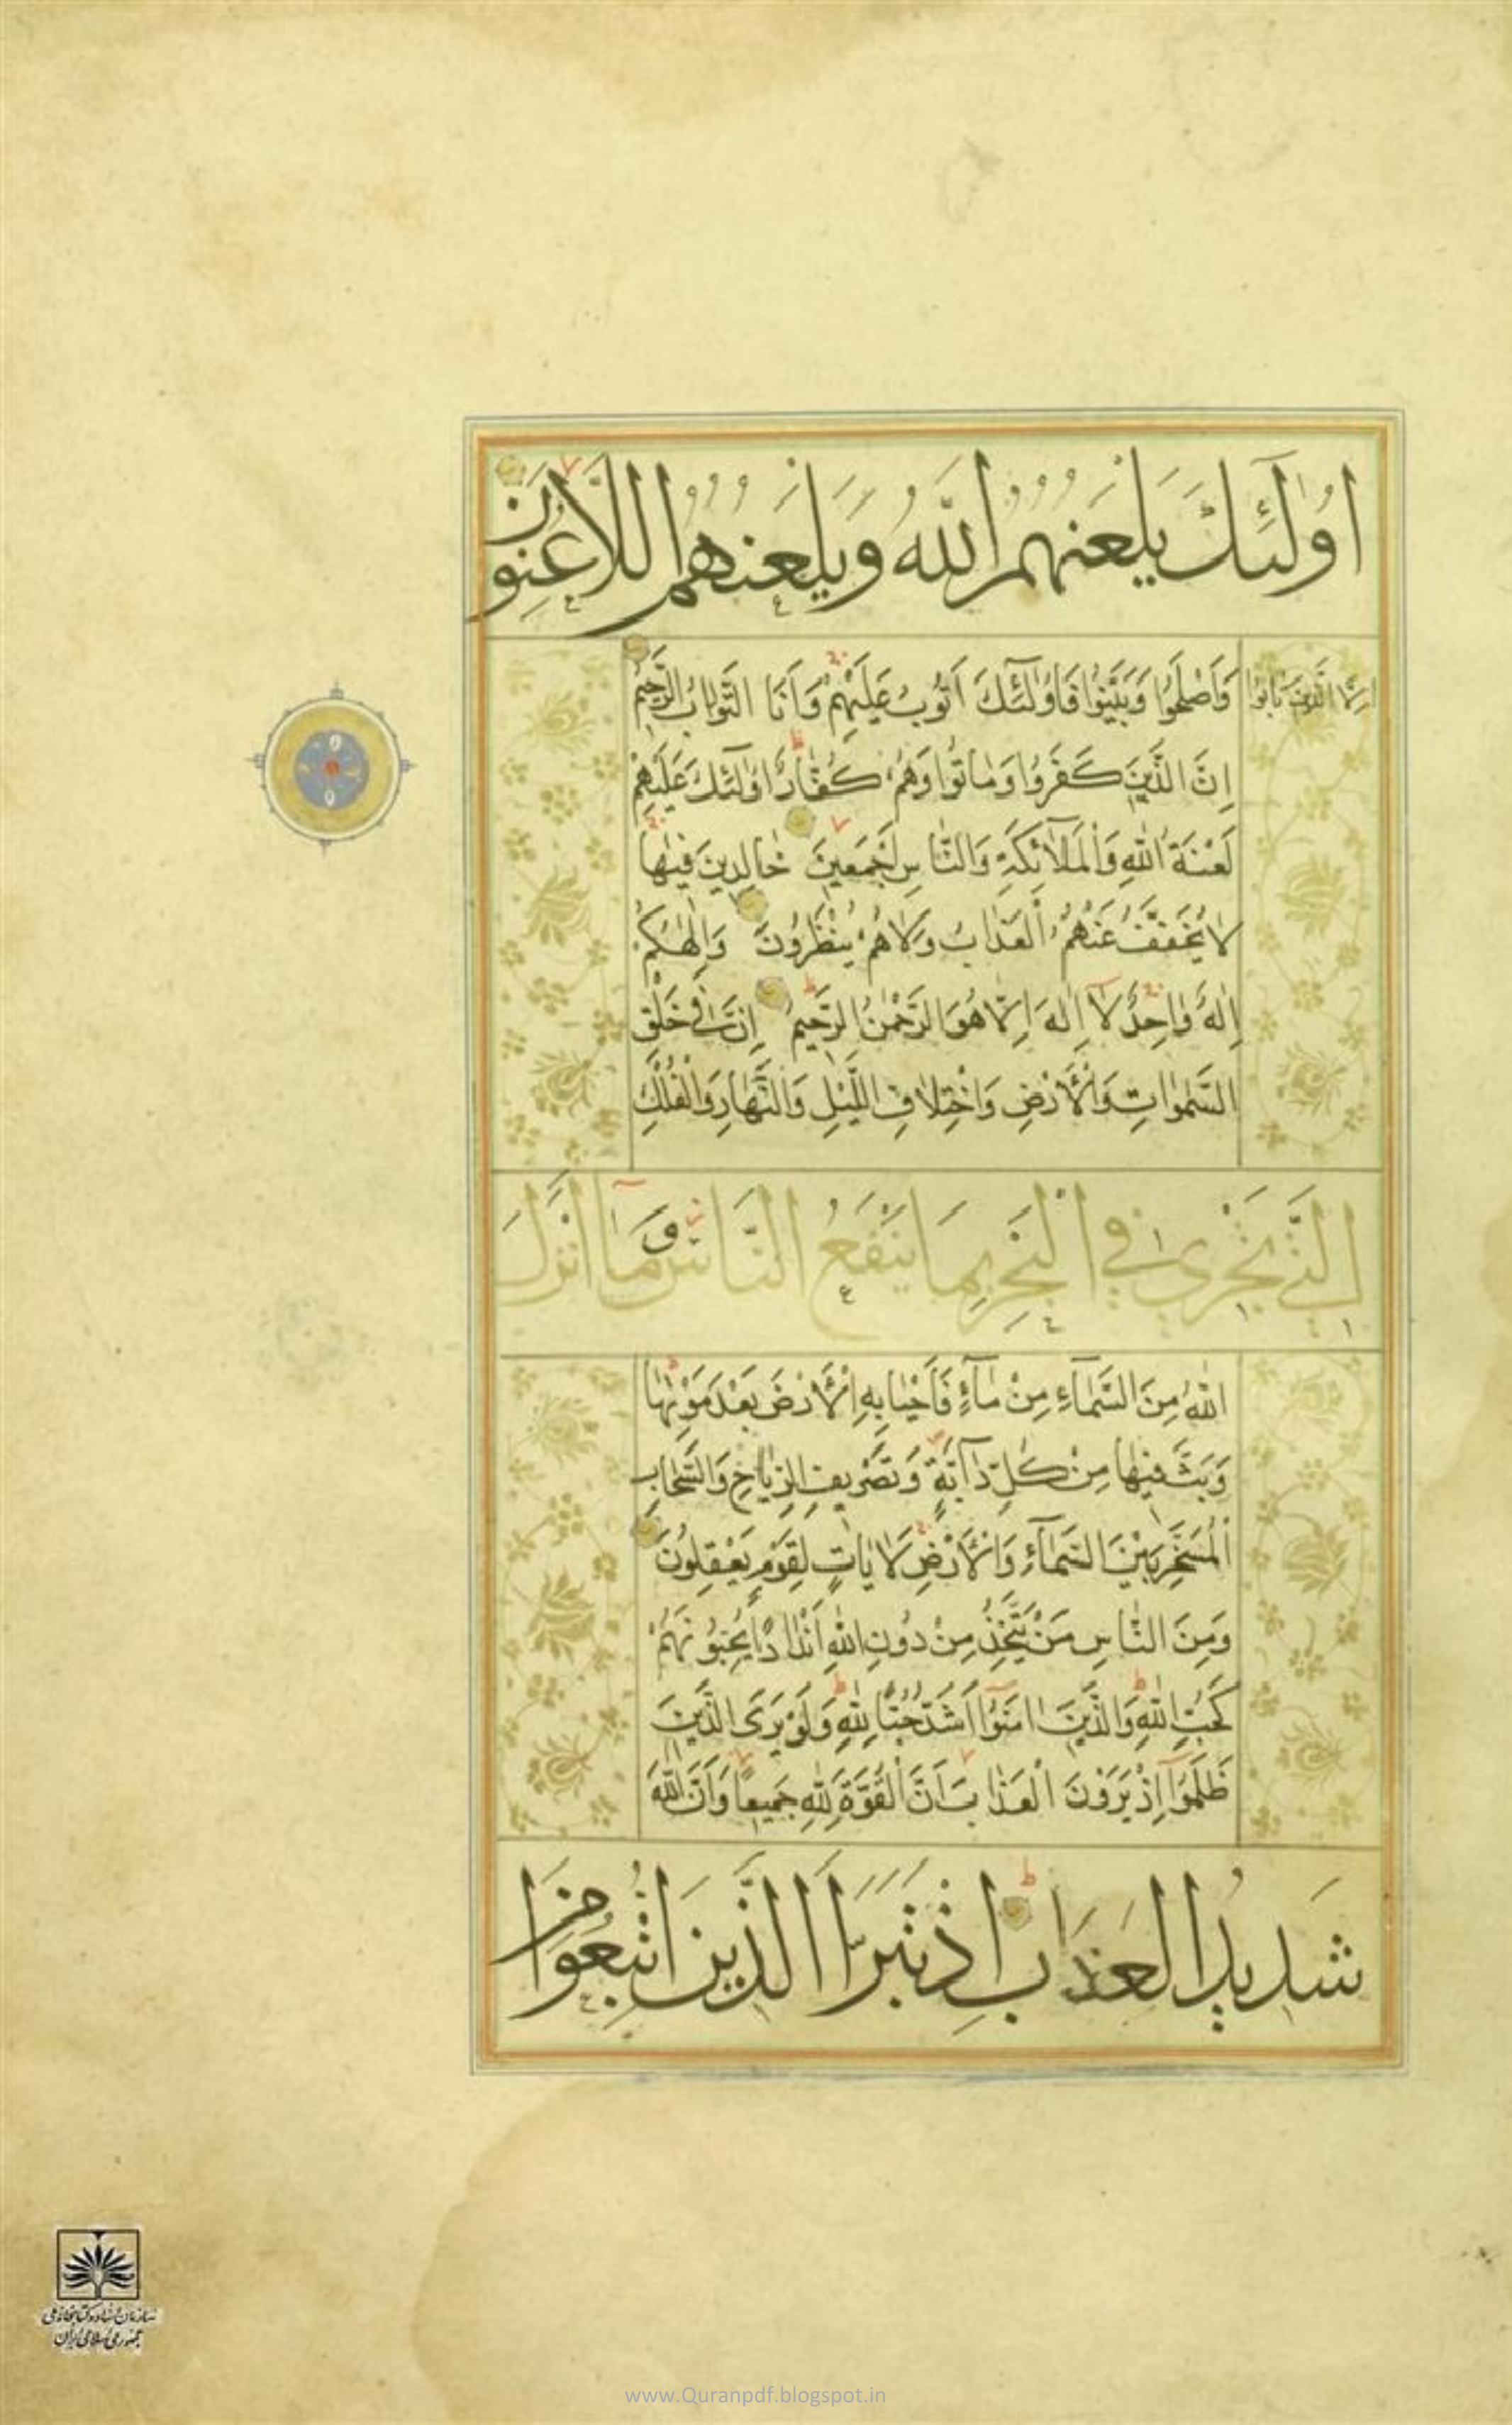 اُولٰئِكَ يَلْعَنُهُمُ اللّٰهُ وَيَلْعَنُهُمُ اللَّاعِنُونَ
اِلَّا الَّذِينَ تَابُوا وَاَصْلَحُوا وَبَيَّنُوا فَاُولٰٓئِكَ اَتُوبُ عَلَيْهِمْ وَاَنَا التَّوَّابُ الرَّحِيمُ
اِنَّ الَّذِينَ كَفَرُوا وَمَاتُوا وَهُمْ كُفَّارٌ اُولٰٓئِكَ عَلَيْهِمْ
لَعْنَةُ اللّٰهِ وَالْمَلَآئِكَةِ وَالنَّاسِ اَجْمَعِينَ خَالِدِينَ فِيهَا
لَا يُخَفَّفُ عَنْهُمُ الْعَذَابُ وَلَا هُمْ يُنْظَرُونَ وَاِلٰهُكُمْ
اِلٰهٌ وَاحِدٌ لَآ اِلٰهَ اِلَّا هُوَ الرَّحْمٰنُ الرَّحِيمُ اِنَّ فِي خَلْقِ
السَّمٰوَاتِ وَالْاَرْضِ وَاخْتِلَافِ اللَّيْلِ وَالنَّهَارِ وَالْفُلْكِ
الَّتِي تَجْرِي فِي الْبَحْرِ بِمَا يَنْفَعُ النَّاسَ وَمَآ اَنْزَلَ
اللّٰهُ مِنَ السَّمَآءِ مِنْ مَآءٍ فَاَحْيَا بِهِ الْاَرْضَ بَعْدَ مَوْتِهَا
وَبَثَّ فِيهَا مِنْ كُلِّ دَآبَّةٍ وَتَصْرِيفِ الرِّيَاحِ وَالسَّحَابِ
الْمُسَخَّرِ بَيْنَ السَّمَآءِ وَالْاَرْضِ لَاٰيَاتٍ لِقَوْمٍ يَعْقِلُونَ
وَمِنَ النَّاسِ مَنْ يَتَّخِذُ مِنْ دُونِ اللّٰهِ اَنْدَادًا يُحِبُّونَهُمْ
كَحُبِّ اللّٰهِ وَالَّذِينَ اٰمَنُوٓا اَشَدُّ حُبًّا لِلّٰهِ وَلَوْ يَرَى الَّذِينَ
ظَلَمُوٓا اِذْ يَرَوْنَ الْعَذَابَ اَنَّ الْقُوَّةَ لِلّٰهِ جَمِيعًا وَاَنَّ اللّٰهَ
شَدِيدُ الْعَذَابِ اِذْ تَبَرَّاَ الَّذِينَ اتُّبِعُوا مِنَ
سازمان اسناد و کتابخانه ملی
جمهوری اسلامی ایران
www.Quranpdf.blogspot.in